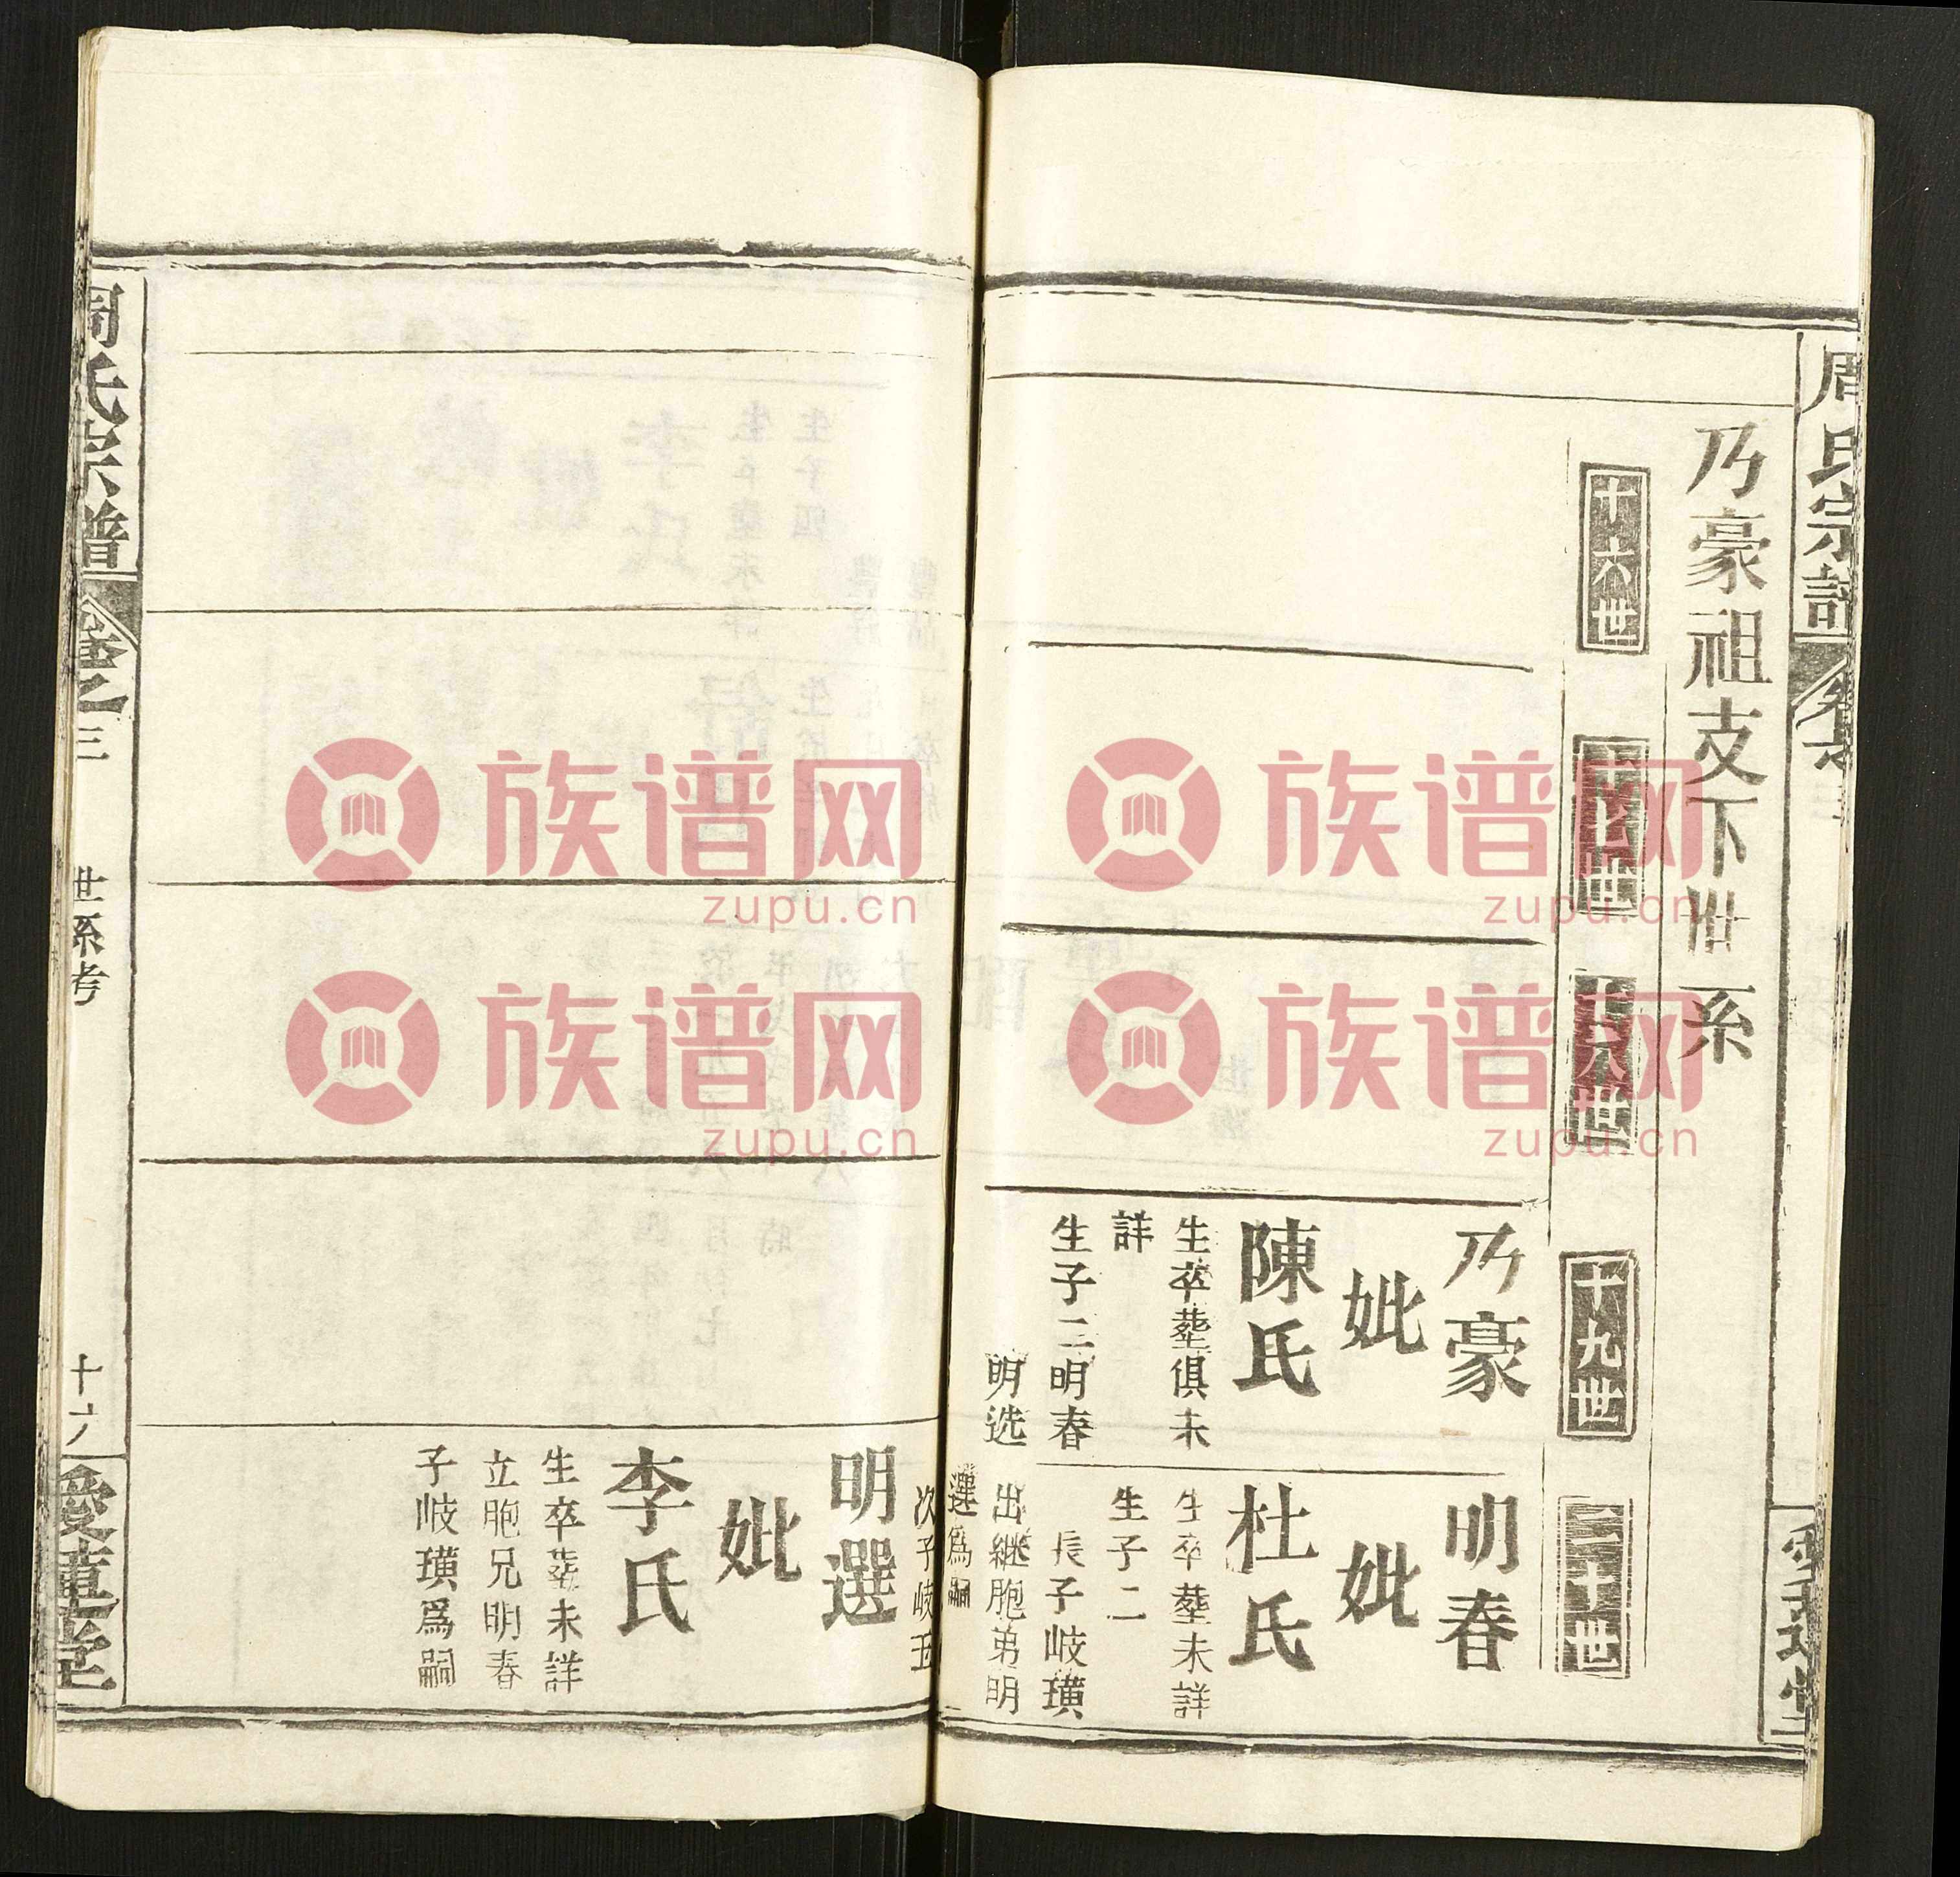 周氏宗譜
卷之三
愛蓮堂
乃豪祖支下世系
十六世
十七世
十八世
十九世
二十世
乃豪
妣
陳氏
生卒塟俱未
詳
生子二明春
明选
明春
妣
杜氏
生卒塟未詳
生子二
長子岐璜
出継胞弟明
選爲嗣
次子岐玉
明選
妣
李氏
生卒塟未詳
立胞兄明春
子岐璜爲嗣
周氏宗譜
卷之三
世系考
十六
愛蓮堂
族谱网
zupu.cn
族谱网
zupu.cn
族谱网
zupu.cn
族谱网
zupu.cn